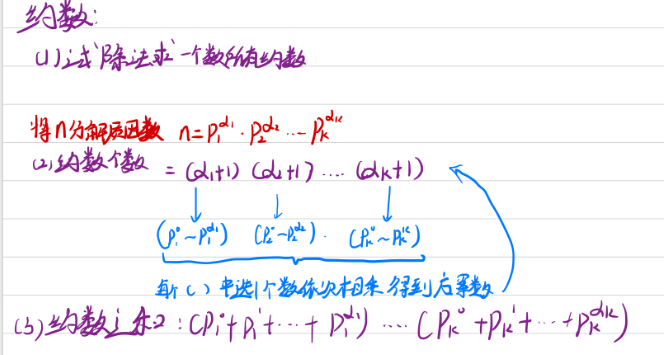 约数:
(1) 试除法求一个数所有约数
将n分解质因数 n=P₁^α₁·P₂^α₂…Pₖ^αₖ
(2) 约数个数 = (α₁+1) (α₂+1) …. (αₖ+1)
(P₁⁰~P₁^α₁) (P₂⁰~P₂^α₂) · (Pₖ⁰~Pₖ^αₖ)
每个( )中选1个数依次相乘 得到
(3) 约数之和: (P₁⁰+P₁¹+…+P₁^α₁) …. (Pₖ⁰+Pₖ¹+…+Pₖ^αₖ)